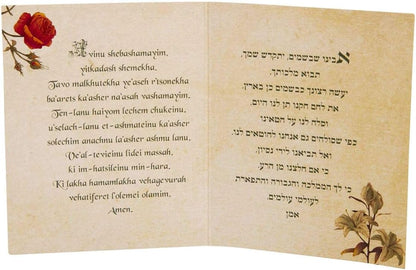 Avinu shebashamayim,
yitkadash shemekha,
Tavo malkhutekha ye'aseh r'tsonekha
ba'arets ka'asher na'asah vashamayim.
Ten-lanu haiyom lechem chukeinu,
u'selach-lanu et-ashmateinu ka'asher
solechim anachnu la'asher ashmu lanu,
Ve'al-tevieinu lidei massah,
ki im-hatsileinu min-hara,
Ki lakha hamamlakha vehagevurah
vehatiferet l'olemei olamim,
Amen.
אבינו שבשמים, יתקדש שמך,
תבוא מלכותך,
יעשה רצונך כבשמים כן בארץ.
את לחם חקנו תן לנו היום,
וסלח לנו על חטאינו
כפי שסולחים גם אנחנו לחוטאים לנו.
ואל תביאנו לידי נסיון,
כי אם חלצנו מן הרע.
כי לך הממלכה והגבורה והתפארת
לעולמי עולמים.
אמן